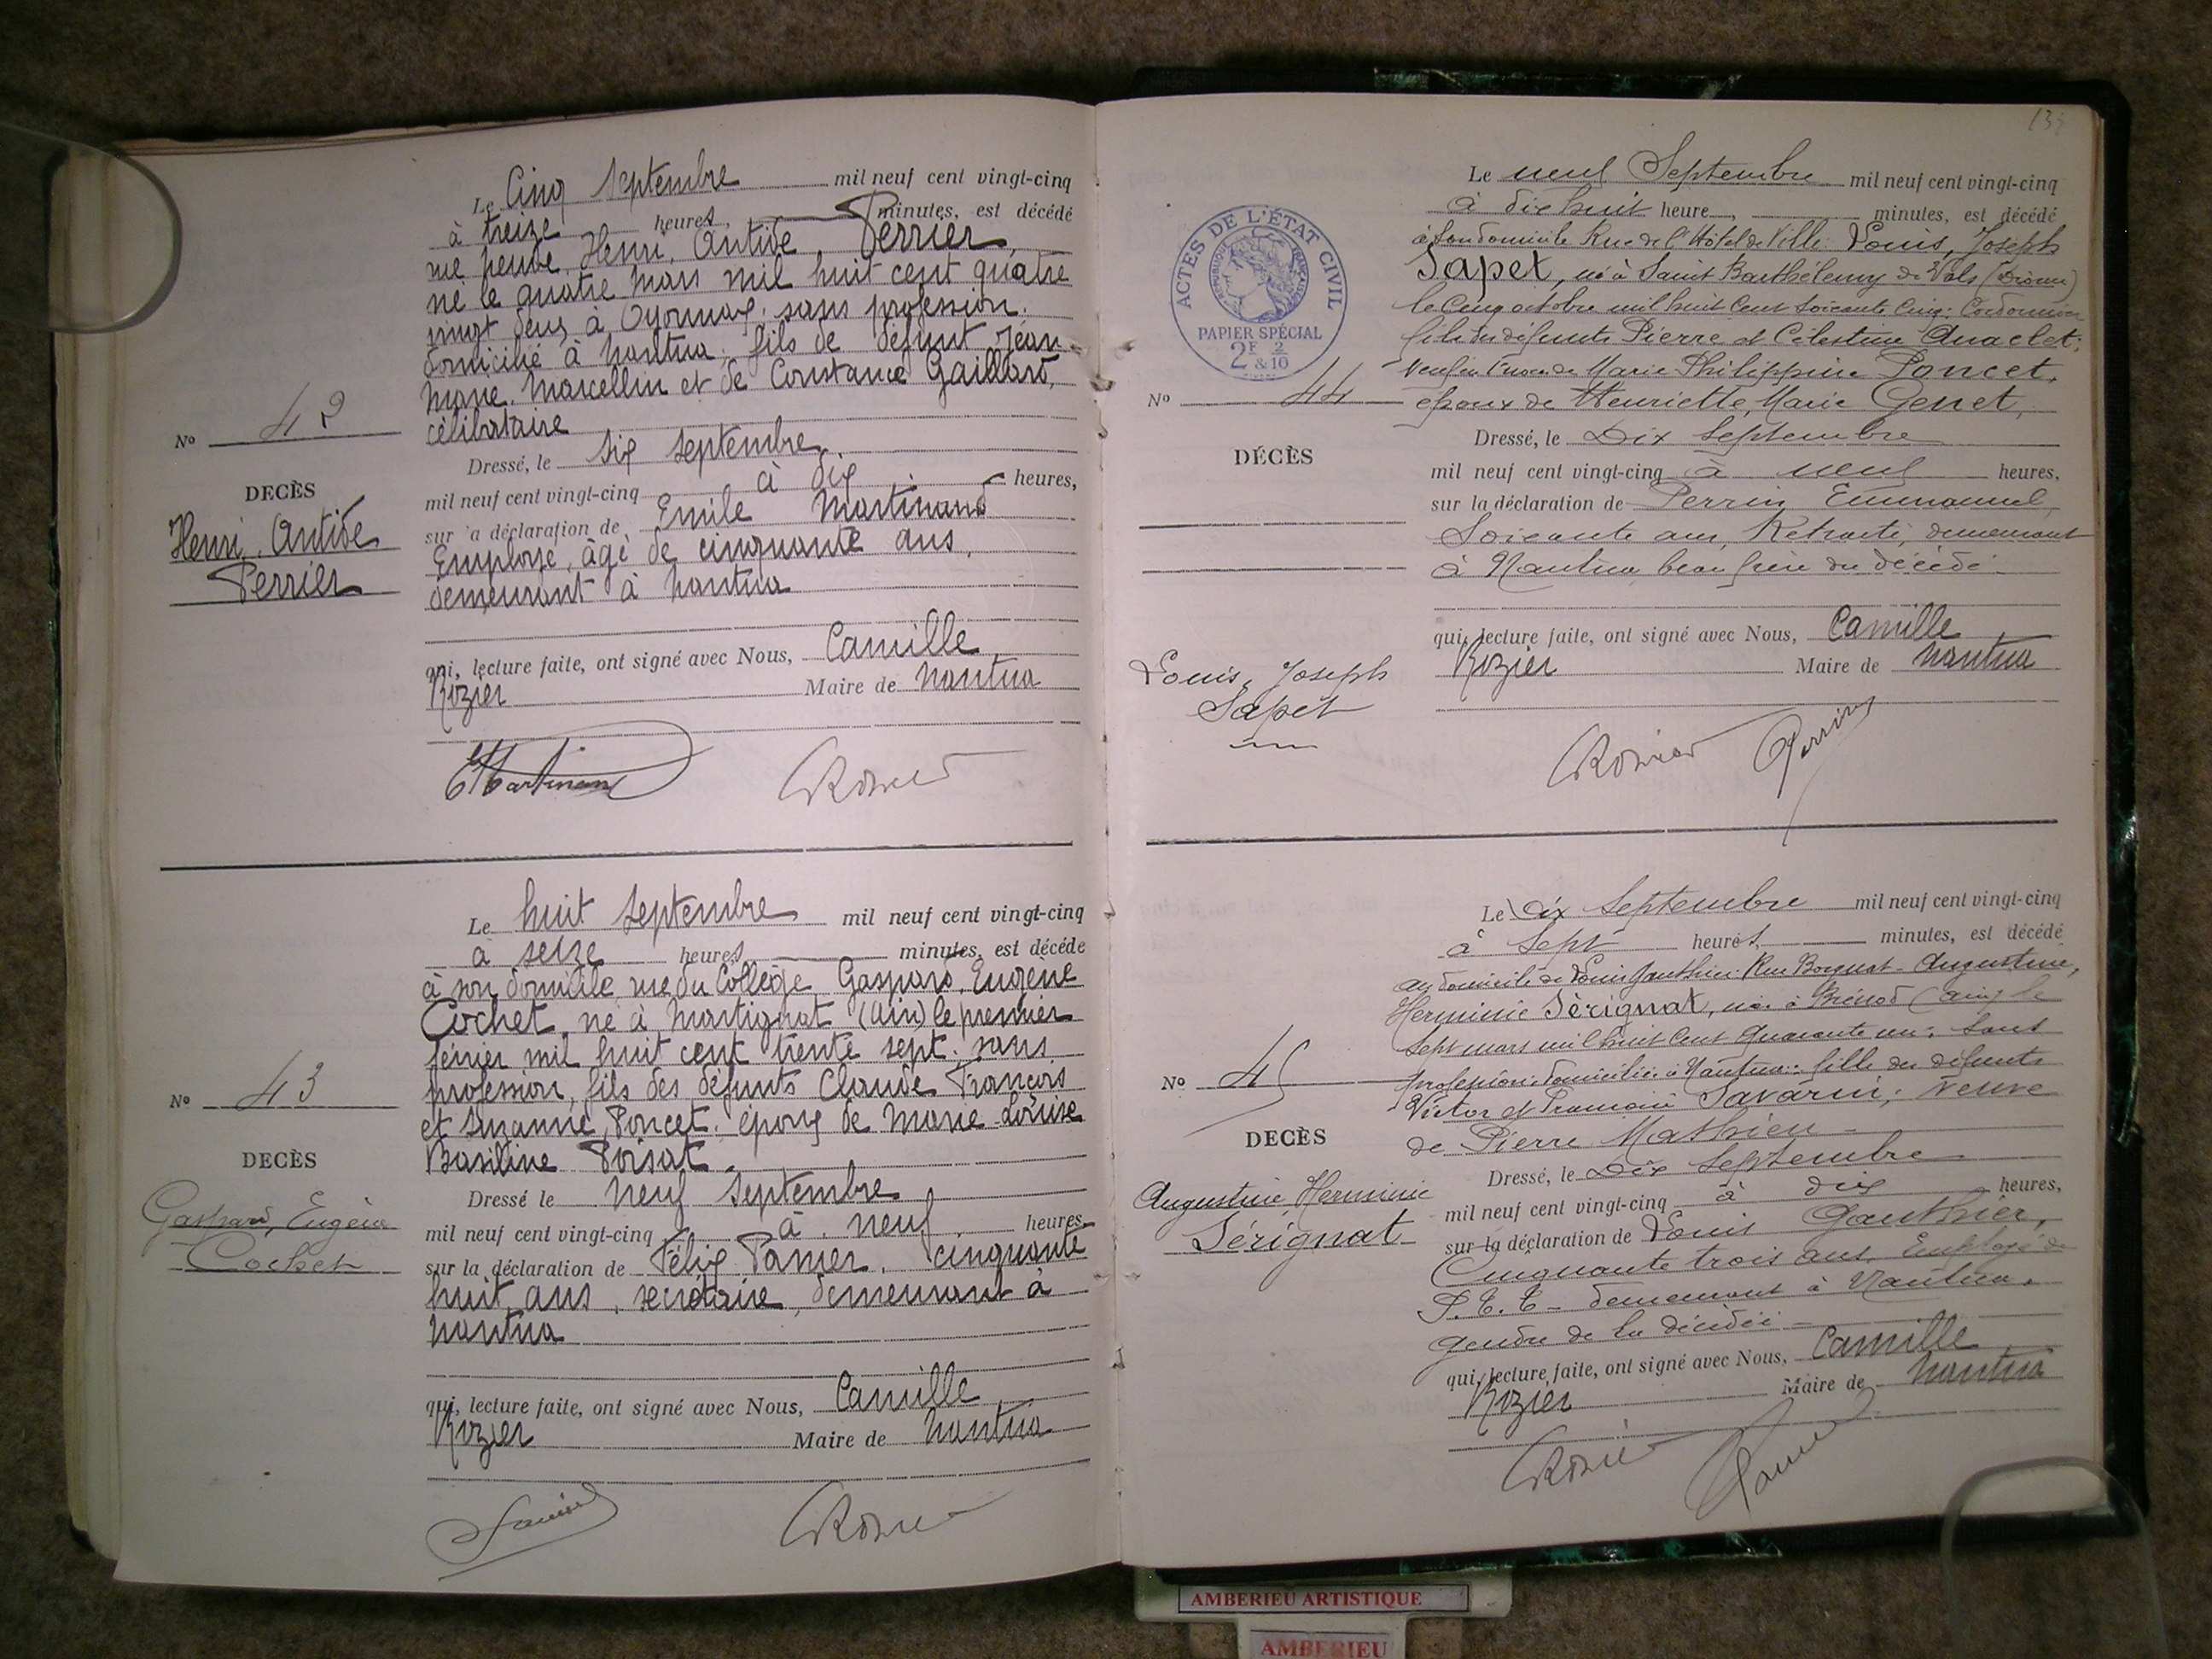 Le Cinq Septembre mil neuf cent vingt-cinq
à treize heures, minutes, est décédé
rue neuve, Henri, Antide, Perrier,
né le quatre mars mil huit cent quatre
vingt deux à Oyonnax, sans profession,
domicilié à Nantua, fils de défunt Jean
Marie, Marcellin et de Constance Gaillard,
célibataire
No 42
DECÈS
Henri, Antide
Perrier
Dressé, le six septembre
mil neuf cent vingt-cinq à dix heures,
sur la déclaration de Emile Martinand
Employé, âgé de cinquante ans,
demeurant à Nantua
qui, lecture faite, ont signé avec Nous, Camille
Rozier Maire de Nantua
EMartinand Rozier
Le huit septembre mil neuf cent vingt-cinq
à seize heures, minutes, est décédé
à son domicile, rue du Collège, Gaspard, Eugène
Cochet, né à Martignat (Ain) le premier
février mil huit cent trente sept, sans
profession, fils des défunts Claude François
et Suzanne Poncet, époux de Marie-Louise
Basiline Poisat.
No 43
DECÈS
Gaspard, Eugène
Cochet
Dressé le neuf septembre
mil neuf cent vingt-cinq à neuf heures,
sur la déclaration de Félix Panier, cinquante
huit ans, secrétaire, demeurant à
Nantua
qui, lecture faite, ont signé avec Nous, Camille
Rozier Maire de Nantua
Rozier
ACTES DE L'ÉTAT CIVIL
RÉPUBLIQUE FRANÇAISE
PAPIER SPÉCIAL
2F & 2/10
Le neuf Septembre mil neuf cent vingt-cinq
à dix huit heure, minutes, est décédé
à son domicile Rue de l'Hôtel de Ville: Louis, Joseph
Sapet, né à Saint Barthélemy de Vals (Drôme)
le cinq octobre mil huit cent soixante cinq: Cordonnier
fils des défunts Pierre et Célestine Anaclet;
Veuf en 1res noces de Marie Philippine Poncet,
époux de Henriette, Marie Genet,
No 44
DÉCÈS
Louis, Joseph
Sapet
Dressé, le Dix Septembre
mil neuf cent vingt-cinq à neuf heures,
sur la déclaration de Perrin Emmanuel,
Soixante ans, Retraité, demeurant
à Nantua, beau frère du décédé
qui, lecture faite, ont signé avec Nous, Camille
Rozier Maire de Nantua
Rozier Perrin
Le Dix Septembre mil neuf cent vingt-cinq
à Sept heures, minutes, est décédé
au domicile de Louis Gauthier: Rue Borgnat - Augustine,
Herminie Sérignat, née à Brénod (Ain) le
sept mars mil huit cent quarante un; sans
profession: domiciliée à Nantua: fille des défunts
Victor et Savarin; veuve
de Pierre Mathieu
No 45
DECÈS
Augustine Herminie
Sérignat
Dressé, le Dix Septembre
mil neuf cent vingt-cinq à dix heures,
sur la déclaration de Louis Gauthier,
Cinquante trois ans, Employé de
P.T.T - demeurant à Nantua,
gendre de la décédée
qui, lecture faite, ont signé avec Nous, Camille
Rozier Maire de Nantua
Rozier
AMBERIEU ARTISTIQUE
AMBERIEU